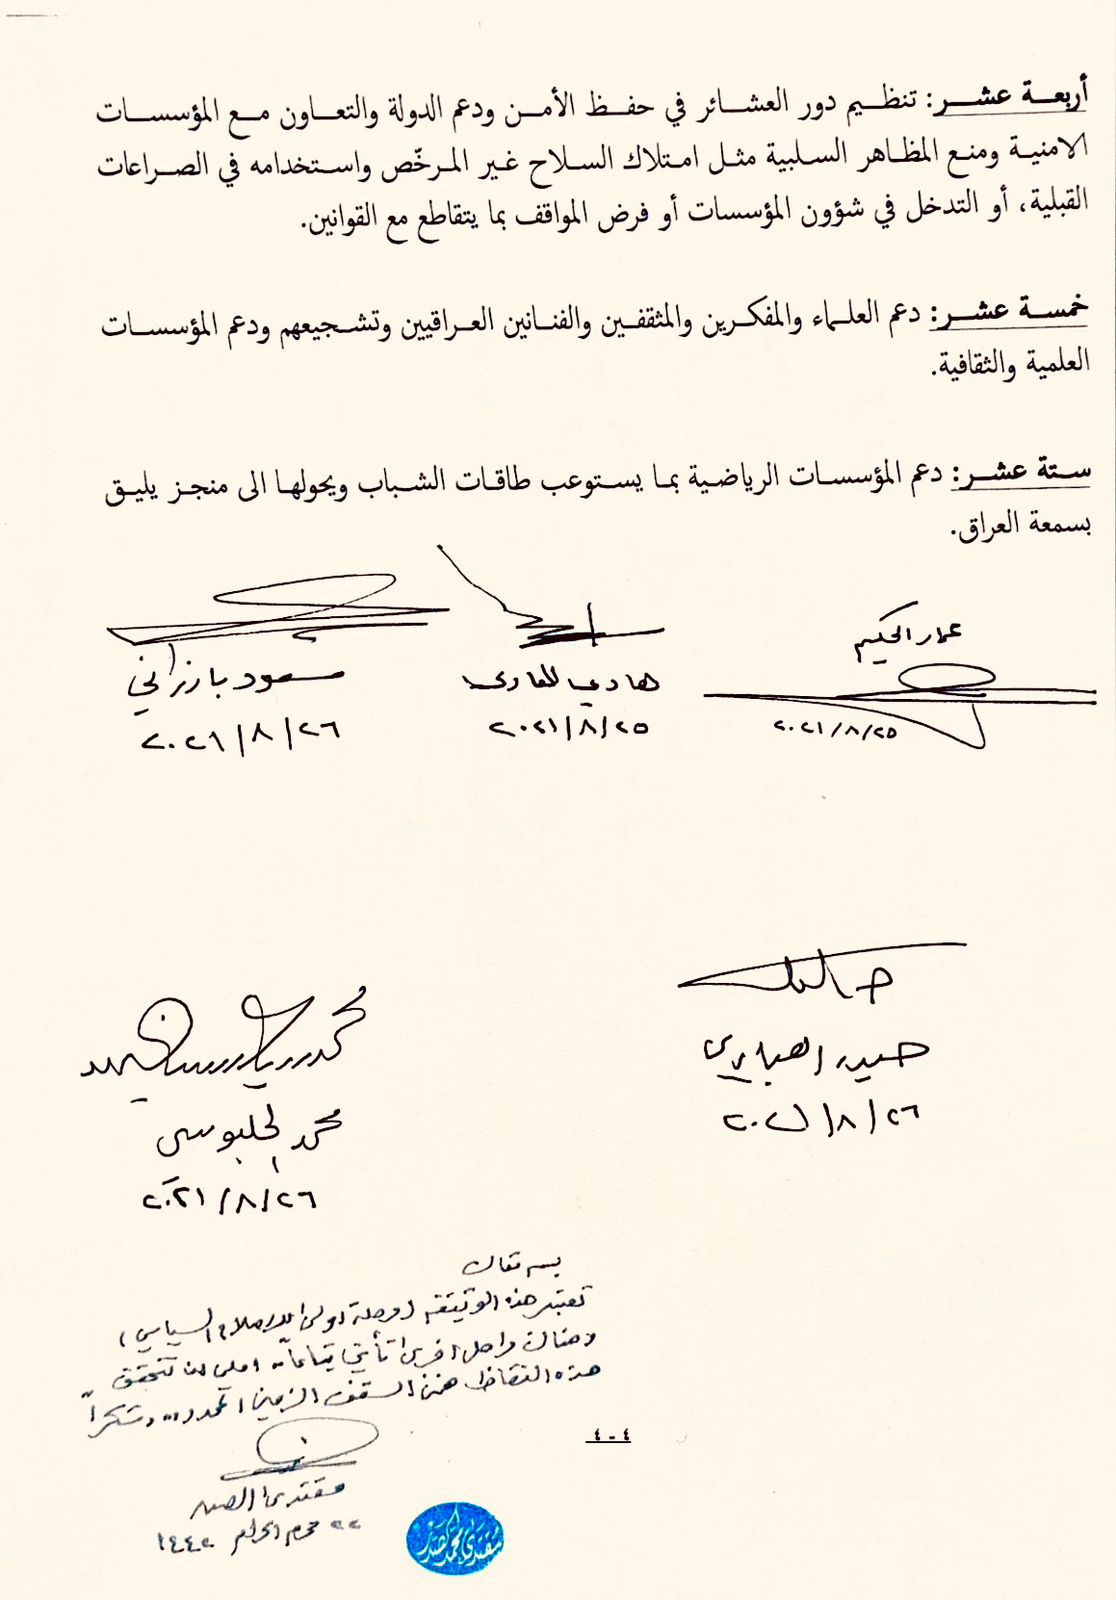 أربعة عشر: تنظيم دور العشائر في حفظ الأمن ودعم الدولة والتعاون مع المؤسسات
الامنية ومنع المظاهر السلبية مثل امتلاك السلاح غير المرخّص واستخدامه في الصراعات
القبلية، أو التدخل في شؤون المؤسسات أو فرض المواقف بما يتقاطع مع القوانين.
خمسة عشر: دعم العلماء والمفكرين والمثقفين والفنانين العراقيين وتشجيعهم ودعم المؤسسات
العلمية والثقافية.
ستة عشر: دعم المؤسسات الرياضية بما يستوعب طاقات الشباب ويحولها الى منجز يليق
بسمعة العراق.
عمار الحكيم
٢٠٢١/٨/٢٥
هادي العامري
٢٠٢١/٨/٢٥
مسعود بارزاني
٢٠٢١/٨/٢٦
حيدر العبادي
٢٠٢١/٨/٢٦
محمد الحلبوسي
٢٠٢١/٨/٢٦
بسمه تعالى
تعتبر هذه الوثيقة مرحلة اولى للاصلاح السياسي
وهناك مراحل اخرى تأتي تباعاً.. املي ان تتحقق
هذه النقاط ضمن السقف الزمني المحدد... وشكراً
مقتدى الصدر
محرم الحرام
٤ - ٤